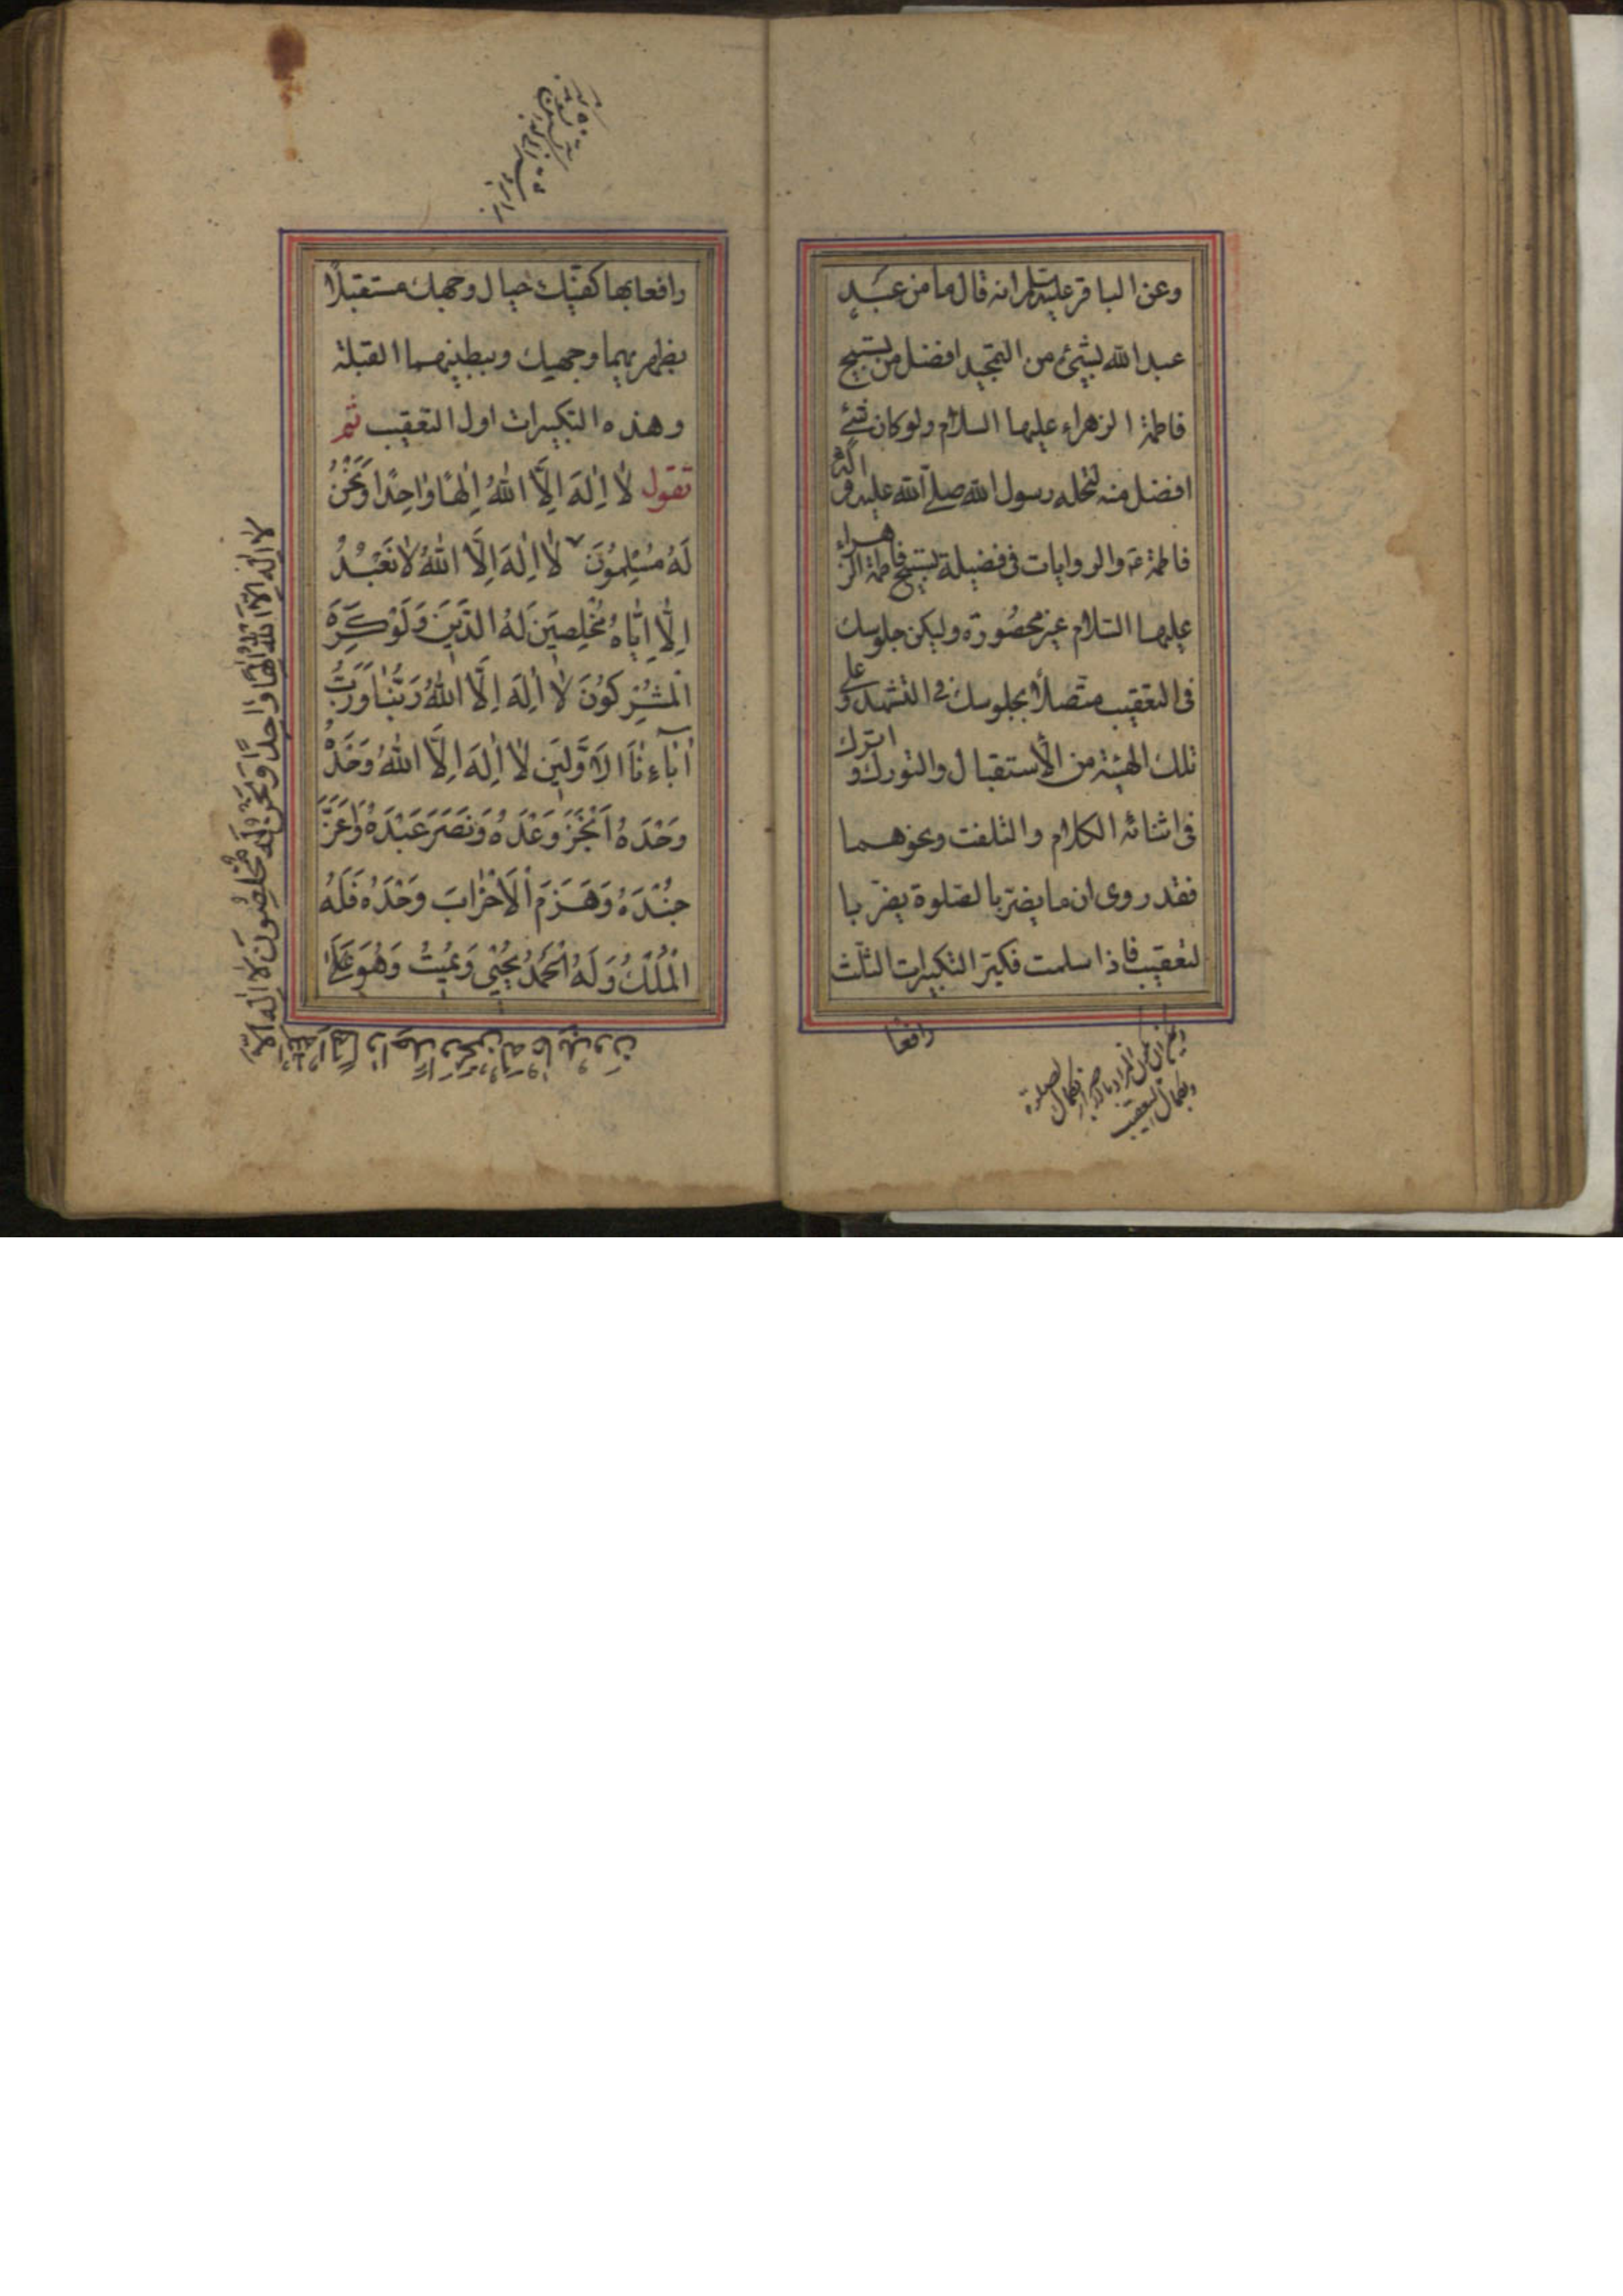 وعن الباقر عليه السلم انه قال ما من عبد
عبد الله بشئ من التمجيد افضل من تسبيح
فاطمة الزهراء عليها السلام ولو كان شئ
افضل منه لنحله رسول الله صلى الله عليه واله
فاطمة ع والروايات فى فضيلة تسبيح فاطمة الزهراء
عليها السلام غير محصورة وليكن جلوسك
فى التعقيب متصلا بجلوسك فى التشهد وعلى
تلك الهيئة من الاستقبال والتورك واترك
فى اثنائه الكلام والتلفت ونحوهما
فقد روى ان ما يضر بالصلوة يضر با
لتعقيب فاذا سلمت فكبر التكبيرات الثلث
رافعا
رافعا بها كفيك حيال وجهك مستقبلا
بظهريهما وجهك وببطنيهما القبلة
وهذه التكبيرات اول التعقيب ثم
تقول لا اِلٰهَ اِلَّا اللهُ اِلٰهًا وَاحِدًا وَنَحْنُ
لَهُ مُسْلِمُونَ لا اِلٰهَ اِلَّا اللهُ لا نَعْبُدُ
اِلَّا اِيَّاهُ مُخْلِصِينَ لَهُ الدِّينَ وَلَوْ كَرِهَ
الْمُشْرِكُونَ لا اِلٰهَ اِلَّا اللهُ رَبُّنَا وَرَبُّ
اٰبَاءِنَا الْاَوَّلِينَ لا اِلٰهَ اِلَّا اللهُ وَحْدَهُ
وَحْدَهُ اَنْجَزَ وَعْدَهُ وَنَصَرَ عَبْدَهُ وَاَعَزَّ
جُنْدَهُ وَهَزَمَ الْاَحْزَابَ وَحْدَهُ فَلَهُ
الْمُلْكُ وَلَهُ الْحَمْدُ يُحْيِي وَيُمِيتُ وَهُوَ عَلَى
لا اِلٰهَ اِلَّا اللهُ اِلٰهًا وَاحِدًا وَنَحْنُ لَهُ مُخْلِصُونَ لا اِلٰهَ اِلَّا
اللهُ اِلٰهًا وَاحِدًا وَنَحْنُ لَهُ عَابِدُونَ